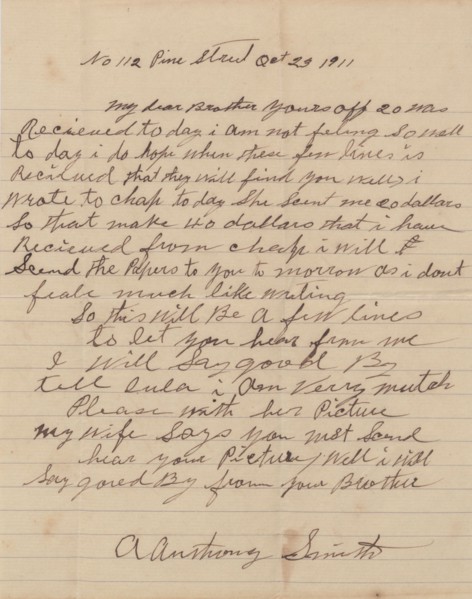 No 112 Pine Street Oct 23 1911
My dear Brother yours off 20 was
Recieved to day i am not feling So well
to day i do hope when these few lines is
Recieved that they will find you well i
wrote to chap to day She Sent me 20 dollars
So that make 40 dollars that i have
Recieved from chap i will
Scend the Papers to you to morrow as i dont
feale much like writing
So this will Be a few lines
to let you hear from me
I will Say good By
tell lula i am verry mutch
Please with her Picture
my wife Says you must Send
hear your Picture Well i will
Say good By from your Brother
A Anthony Smith